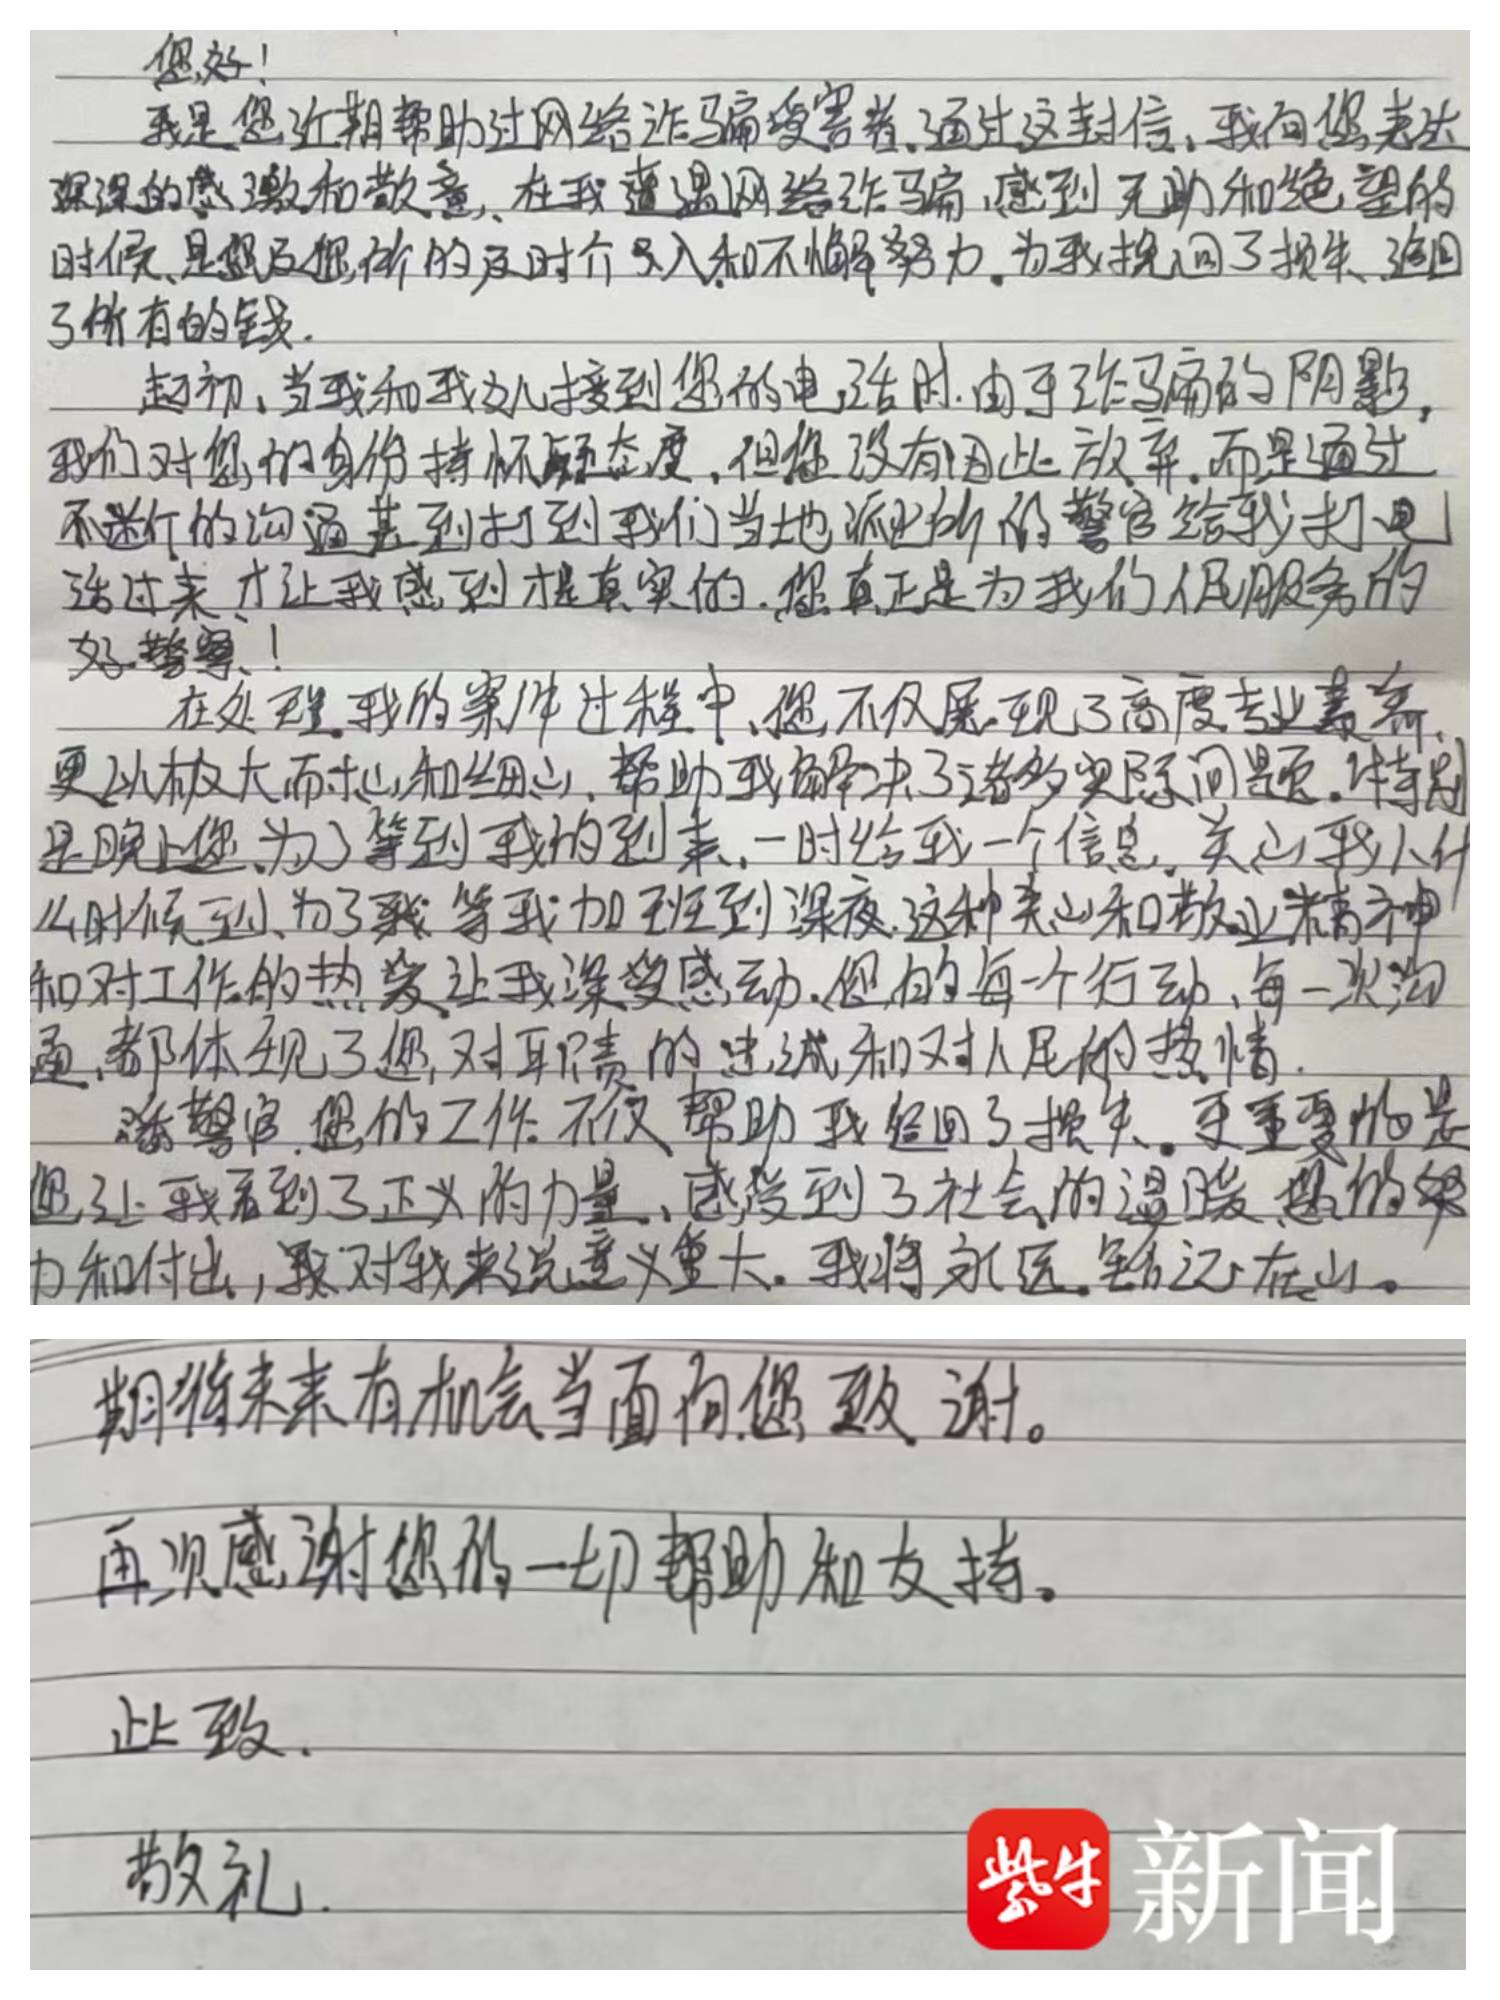 您好！
我是您近期帮助过网络诈骗受害者.通过这封信、我向您表达
深深的感激和敬意、在我遭遇网络诈骗、感到无助和绝望的
时候、是您及您所的及时介入和不懈努力.为我挽回了损失、追回
了所有的钱.
起初、当我和我女儿接到您的电话时.由于诈骗的阴影,
我们对您的身份持怀疑态度.但您没有因此放弃.而是通过
不断的沟通甚到打到我们当地派出所的警官给我打电
话过来、才让我感到才是真实的.您真正是为我们人民服务的
好警察！
在处理我的案件过程中、您不仅展现了高度专业素养、
更以极大耐心和细心、帮助我解决了诸多实际问题.特别
是晚上您、为了等到我的到来、一时给我一个信息.关心我人什
么时候到、为了我等我加班到深夜.这种关心和敬业精神
和对工作的热爱让我深受感动.您的每一个行动、每一次沟
通、都体现了您对职责的忠诚和对人民的热情.
潘警官.您的工作不仅帮助我追回了损失.更重要的是
您让我看到了正义的力量、感受到了社会的温暖.您的努
力和付出,我对我来说意义重大.我将永远铭记在心。
期待未来有机会当面向您致谢。
再次感谢您的一切帮助和支持。
此致.
敬礼.
紫牛新闻